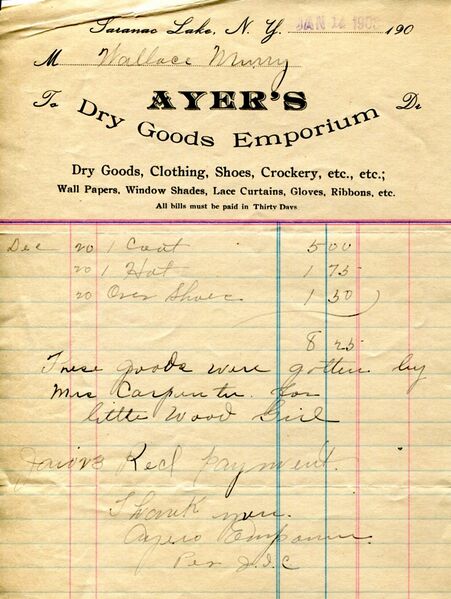 Saranac Lake, N. Y. JAN 14 1908 190
M Wallace Murry
To AYER'S Dr
Dry Goods Emporium
Dry Goods, Clothing, Shoes, Crockery, etc., etc.;
Wall Papers, Window Shades, Lace Curtains, Gloves, Ribbons, etc.
All bills must be paid in Thirty Days
Dec 20 1 Coat 5 00
20 1 Hat 1 75
20 Over Shoes 1 50
8 25
These goods were gotten by
Mrs Carpenter for
little Wood Girl
Recd payment.
Thank you.
Ayers Emporium.
Per J.I.C